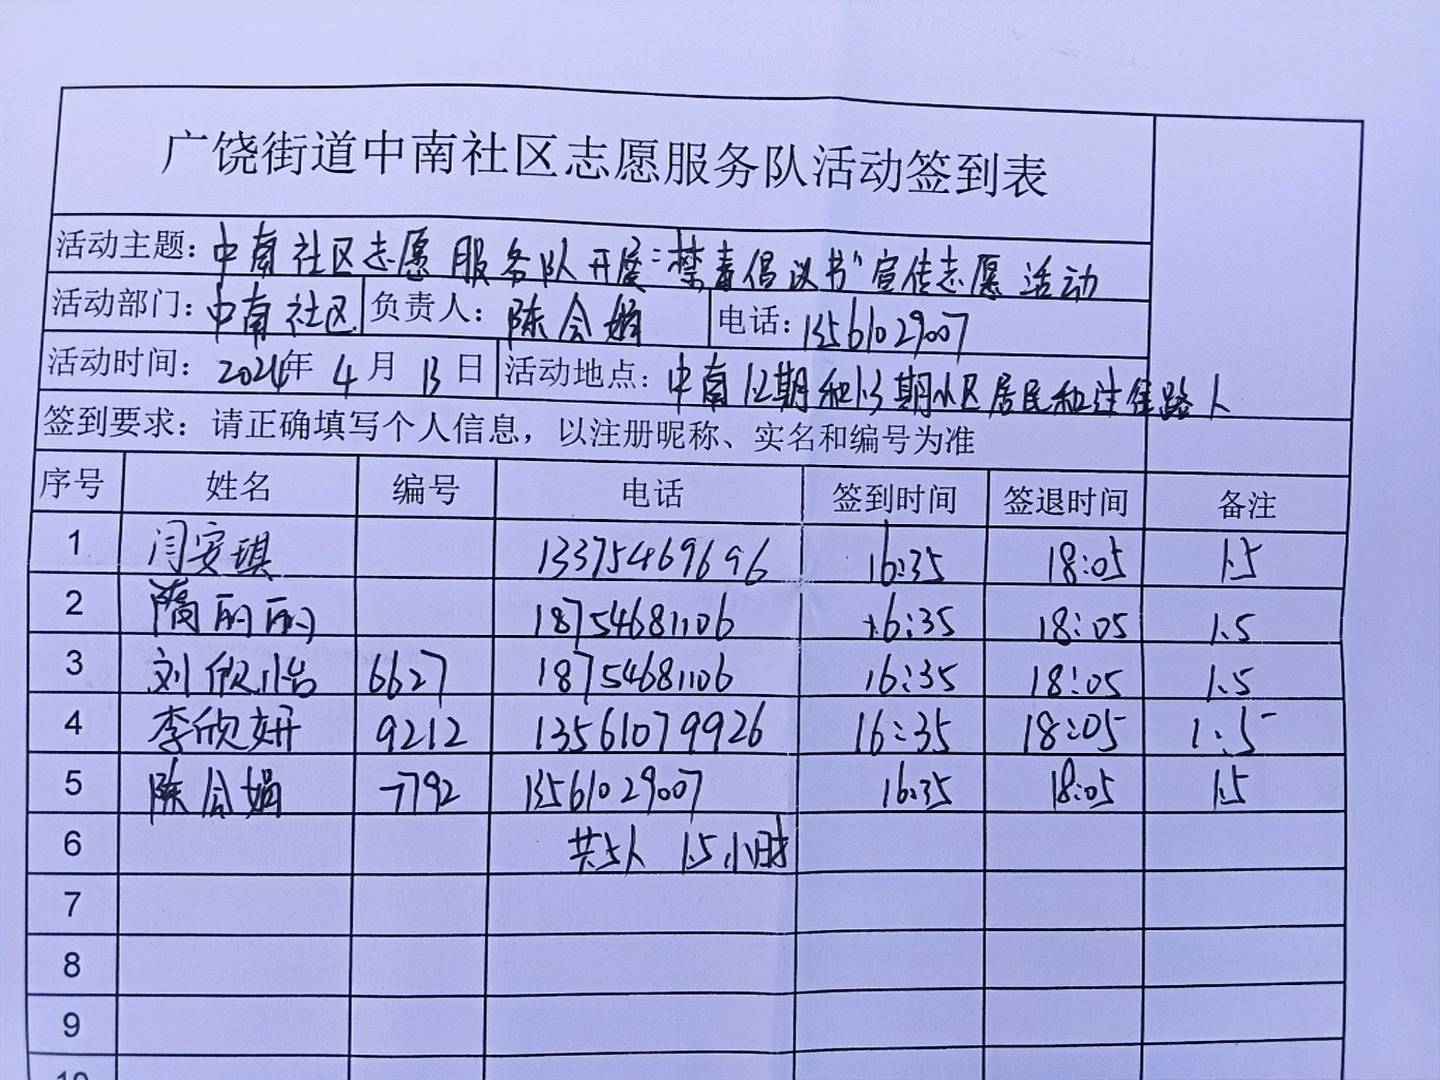 广饶街道中南社区志愿服务队活动签到表
活动主题：中南社区志愿服务队开展“禁毒倡议书”宣传志愿活动
活动部门：中南社区 负责人：陈会娟 电话：13561029007
活动时间：2024年4月13日 活动地点：中南12期和13期小区居民和过往路人
签到要求：请正确填写个人信息，以注册昵称、实名和编号为准
序号 姓名 编号 电话 签到时间 签退时间 备注
1 闫安琪 13375469696 16:35 18:05 1.5
2 隋丽丽 18754681106 16:35 18:05 1.5
3 刘欣怡 6627 18754681106 16:35 18:05 1.5
4 李欣妍 9212 13561079926 16:35 18:05 1.5
5 陈会娟 7792 13561029007 16:35 18:05 1.5
6 共5人 1.5小时
7
8
9
10